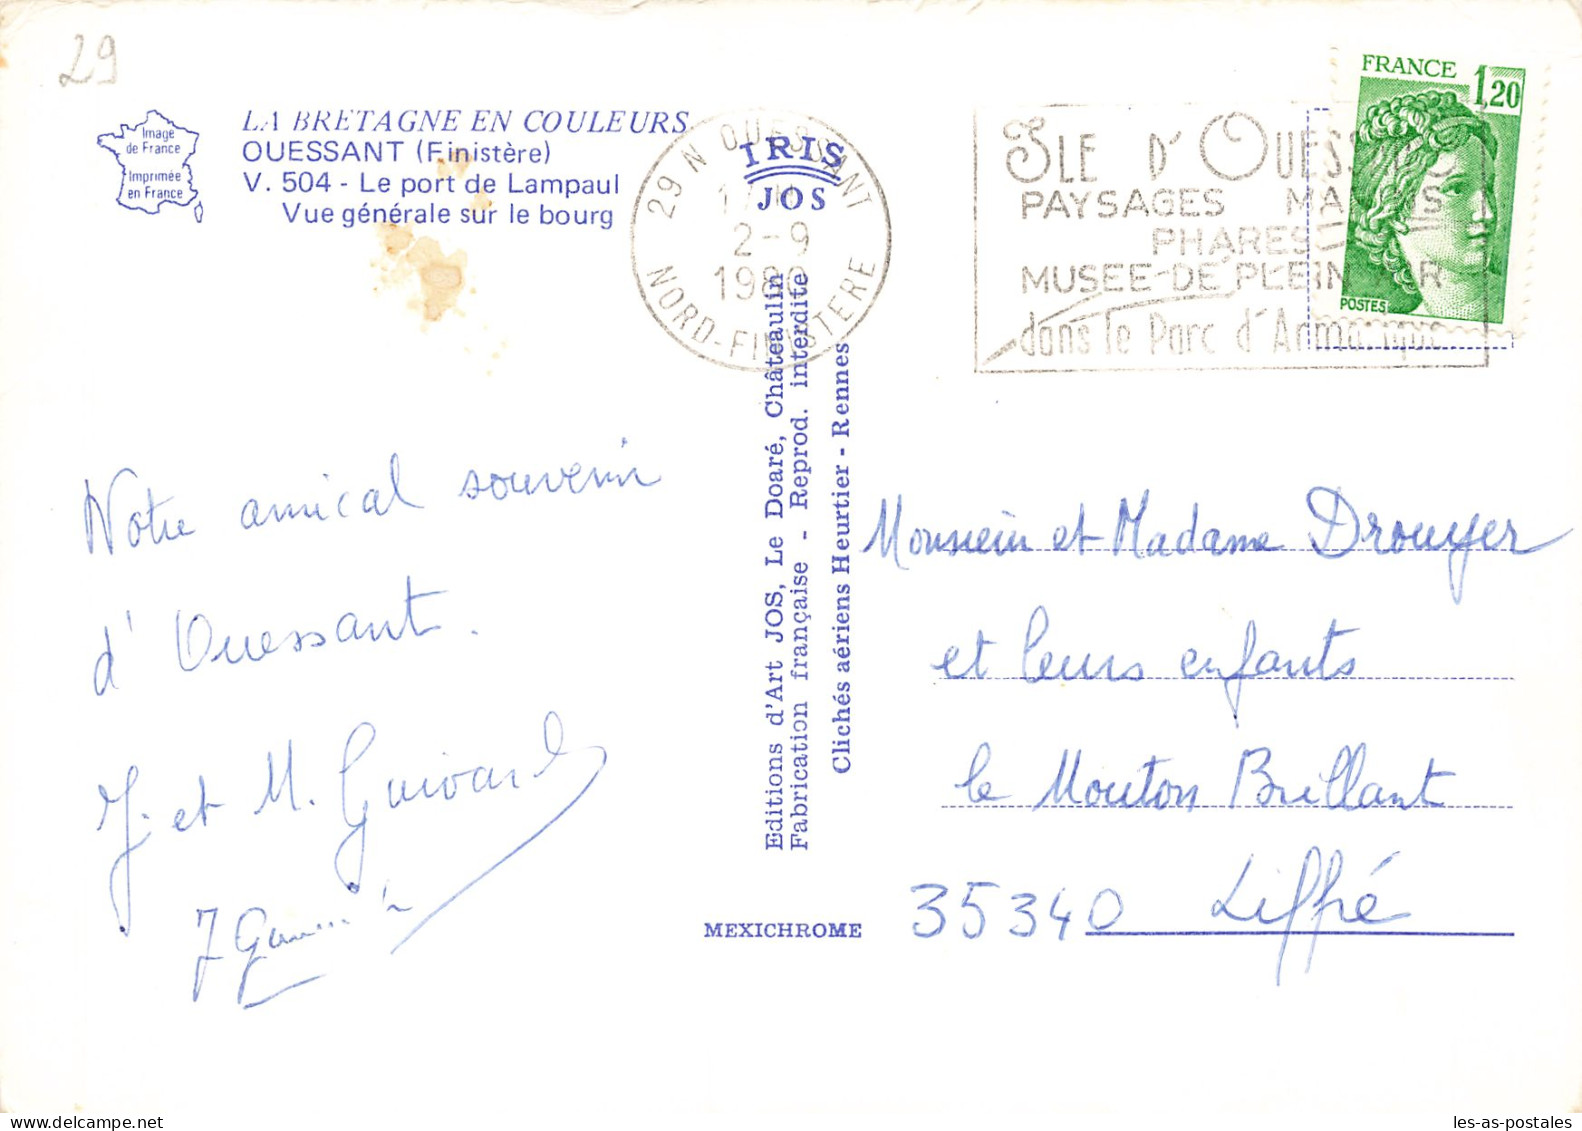 29
Image
de France
Imprimée
en France
LA BRETAGNE EN COULEURS
OUESSANT (Finistère)
V. 504 - Le port de Lampaul
Vue générale sur le bourg
29 N OUESSANT
2-9
1980
NORD-FINISTERE
IRIS
JOS
ILE D'OUESSANT
PAYSAGES MARINS
PHARES
MUSEE DE PLEIN AIR
dans le Parc d'Armorique
FRANCE 1,20
POSTES
Notre amical souvenir
d'Ouessant.
J. et M. Guivard
Editions d'Art JOS, Le Doaré, Châteaulin
Fabrication française - Reprod. interdite
Clichés aériens Heurtier - Rennes
MEXICHROME
Monsieur et Madame Drouyer
et leurs enfants
le Mouton Brillant
35340 Liffré
les-as-postales